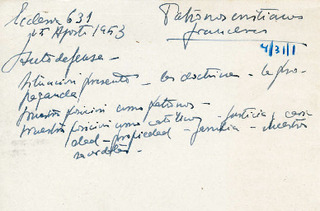 Ecclesia 631
Agosto 1953
Patronos cristianos
franceses
4/31/1
Autodefensa -
situación presente - las doctrinas - la pro-
paganda
nuestra posición como patronos -
nuestra posición como católicos - justicia, cari
dad - propiedad - familia - nuestra